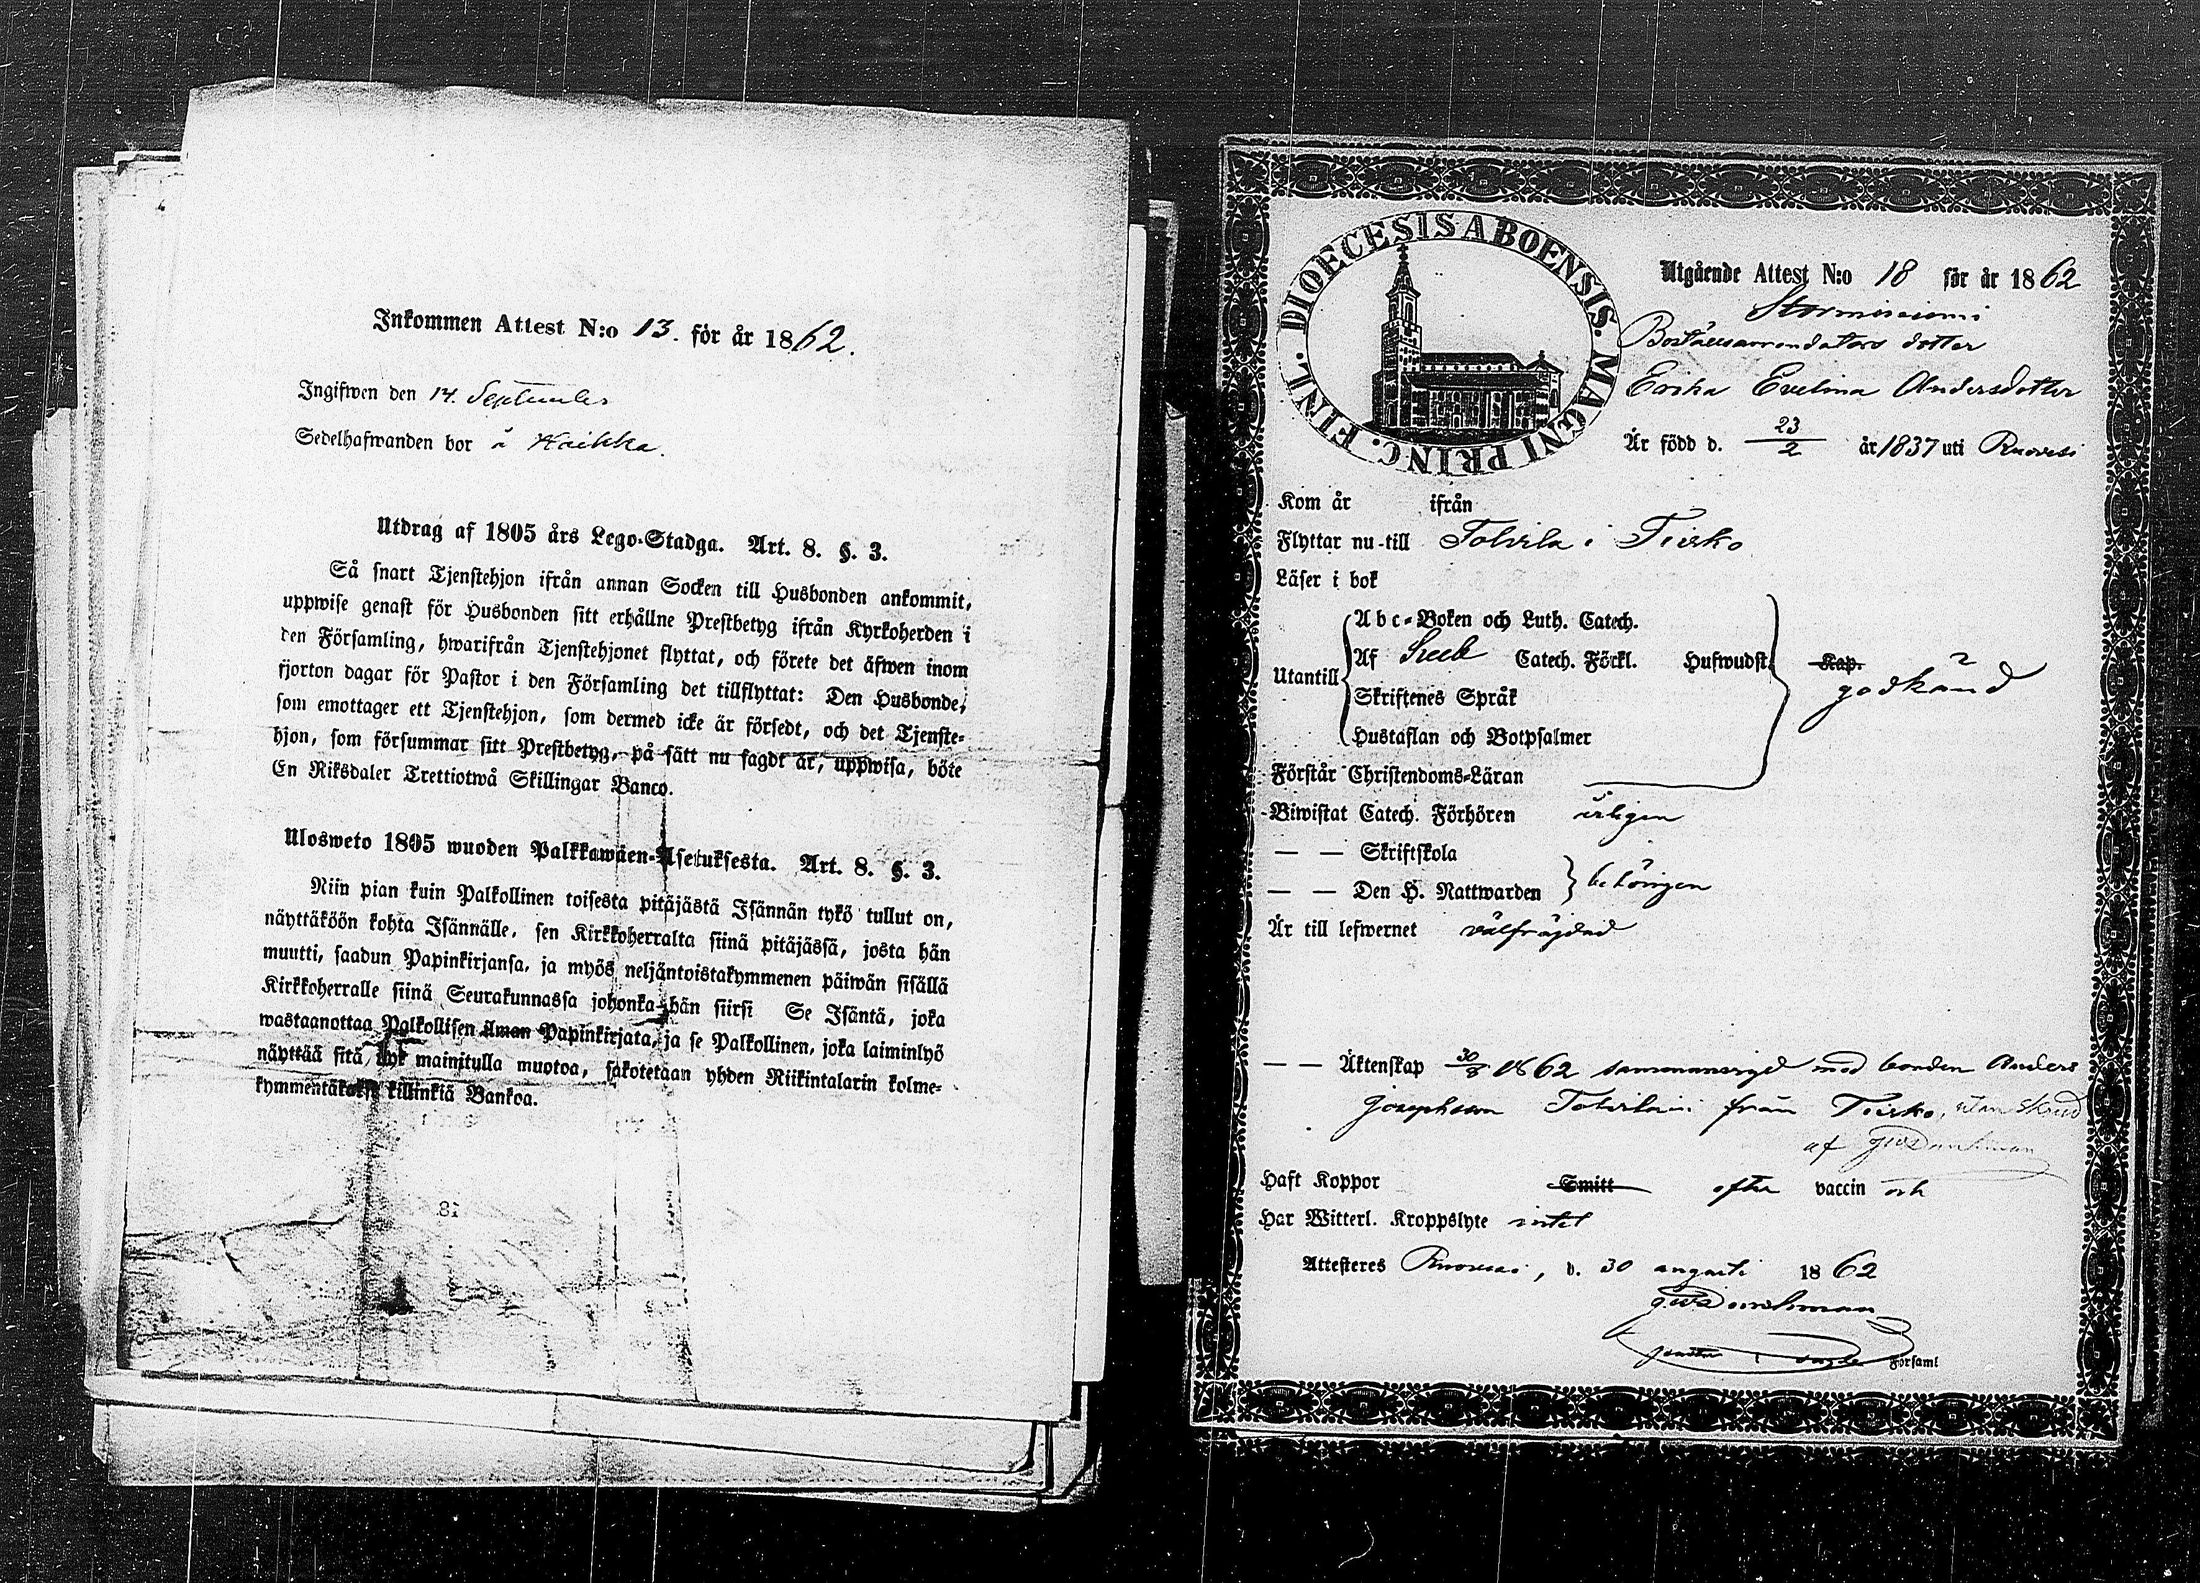 Inkommen Attest N:o 13. för år 1862.
Ingifwen den 14. September
Sedelhafwanden bor å Haikka.
Utdrag af 1805 års Lego-Stadga. Art. 8. §. 3.
Så snart Tjenstehjon ifrån annan Socken till Husbonden ankommit,
uppwise genast för Husbonden sitt erhållne Prestbetyg ifrån Kyrkoherden i
den Församling, hwarifrån Tjenstehjonet flyttat, och förete det äfwen inom
fjorton dagar för Pastor i den Församling det tillflyttat: Den Husbonde,
som emottager ett Tjenstehjon, som dermed icke är försedt, och det Tjenste-
hjon, som försummar sitt Prestbetyg, på sätt nu sagdt är, uppwisa, böte
En Riksdaler Trettiotwå Skillingar Banco.
Ulosweto 1805 wuoden Palkkawäen-Asetuksesta. Art. 8. §. 3.
Niin pian kuin Palkollinen toisesta pitäjästä Isännän tykö tullut on,
näyttäköön kohta Isännälle, sen Kirkkoherralta siinä pitäjässä, josta hän
muutti, saadun Papinkirjansa, ja myös neljäntoistakymmenen päiwän sisällä
Kirkkoherralle siinä Seurakunnassa johonka hän siirsi Se Isäntä, joka
wastaanottaa Palkollisen ilman Papinkirjata, ja se Palkollinen, joka laiminlyö
näyttää sitä, nyt mainitulla muotoa, sakotetaan yhden Riikintalarin kolme-
kymmentäkaksi killinkiä Bankoa.
18
DIOECESIS ABOENSIS. MAGNI PRINC. FINL.
Utgående Attest N:o 18 för år 1862
Storminiemi
Boställsarrendators dotter
Erika Evelina Andersdotter
Är född d. 23/2 år 1837 uti Ruovesi
Kom år ifrån
Flyttar nu till Tolvila i Teisko
Läser i bok
Utantill
Abc-Boken och Luth. Catech.
Af Sveb Catech. Förkl. Hufwudst. Kap.
godkänd
Skriftenes Språk
Hustaflan och Botpsalmer
Förstår Christendoms-Läran
Biwistat Catech. Förhören årligen
— — Skriftskola
— — Den H. Nattwarden behörigen
Är till lefwernet välfräjdad
— — Äktenskap 30/8 1862 sammanvigd med bonden Anders
Josephsson Tolvila från Teisko, utan skrud
af
Haft Koppor Smitt efter vaccin och
Har Witterl. Kroppslyte intet
Attesteres Ruovesi, d. 30 augusti 1862
Församl